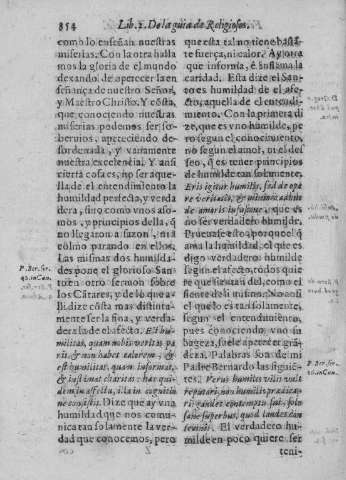 854 Lib. 2. De la guia de Religiosos.
como lo enseñan nuestras
miserias. Con la otra halla
mos la gloria de el mundo
dexando de apetecer la en
señança de nuestro Señor,
y Maestro Christo. Y cõsta,
que conociendo nuestras
miserias podemos ser so-
beruios, apeteciendo de-
sordenada, y vanamente
nuestra excelencia. Y ansi
vierta cosa es, no ser aque-
lla de el entendimiento la
humildad perfecta, y verda
dera, sino como vnos aso-
mos, y principios della, q̃
no llegaron a sazon, ni a
colmo parando en ellos.
Las mismas dos humilda-
des pone el glorioso San-
to en otro sermon sobre
los Cãtares, y de lo que a-
lli dize cõsta mas distinta-
mente ser la fina, y verda-
dera la de el afecto. Est hu-
militas, quam nobis veritas pa
rit, & non habet calorem, &
est humilitas, quam informat,
& inflamat charitas: hæc qui-
dem in affectu, illa in cognitio
ne consistit. Dize que ay vna
humildad que nos comu-
nica tan solamente la ver-
dad que conocemos, pero
P. Ber. ser.
42. in Can.
que esta tal no tiene bastã-
te fuerça, ni calor. Ay otra
que informa, è inflama la
caridad. Esta dize el San-
to es humildad de el afe-
cto, aquella de el entendi-
miento. Con la primera di
ze, que es vno humilde, pe
ro segun el conocimiento,
no segun el amor, ni el des
seo, q̃ es tener principios
de humilde tan solamente.
Eris igitur humilis, sed de ope
re veritatis, & minimè adhuc
de amoris infusione, que es
no ser verdadero humilde.
Prueuase esto, porque el q̃
ama la humildad, el que es
digo verdadero humilde
segun el afecto, todos quie
re que sientan del, como el
siente de si mismo. No ansi
el que lo es tan solamente,
segun el entendimiento,
pues conociendo, su
baxeza, suele apetecer grã-
deza. Palabras son de mi
Padre Bernardo las siguiẽ-
tes. Verus humilis vilis vult
reputari, non humilis prædica-
ri: gaudet contemptu sui, solo
sane superbus, quod laudes con
temnit. El verdadero hu-
milde en poco quiere ser
P. Ber. ser.
16. in Can.
teni-